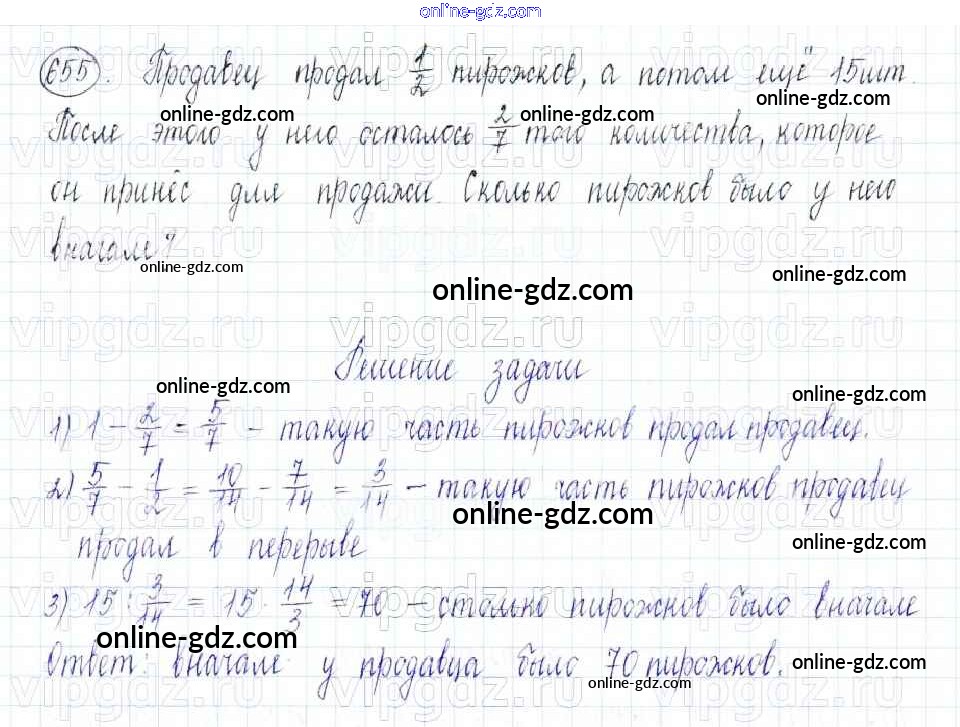 online-gdz.com
655. Продавец продал 1/2 пирожков, а потом ещё 15 шт.
online-gdz.com online-gdz.com online-gdz.com
После этого у него осталось 2/7 того количества, которое
он принёс для продажи. Сколько пирожков было у него
вначале?
online-gdz.com online-gdz.com online-gdz.com
vipgdz.ru vipgdz.ru vipgdz.ru
Решение задачи
online-gdz.com online-gdz.com
1) 1 - 2/7 = 5/7 - такую часть пирожков продал продавец.
2) 5/7 - 1/2 = 10/14 - 7/14 = 3/14 - такую часть пирожков продавец
online-gdz.com
продал в перерыве
online-gdz.com
3) 15 : 3/14 = 15 · 14/3 = 70 - столько пирожков было вначале
online-gdz.com
Ответ: вначале у продавца было 70 пирожков.
online-gdz.com online-gdz.com